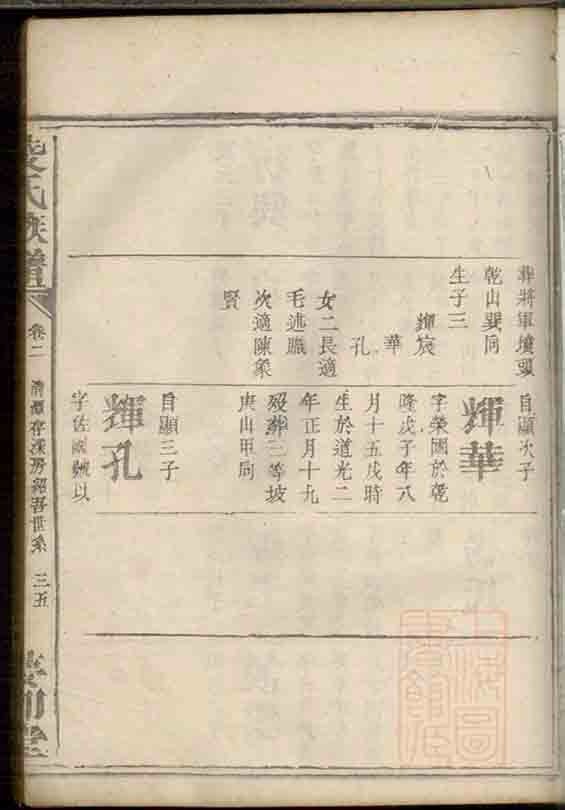 葬將軍墳頭
乾山巽向
生子三
輝宸
華
孔
女二長適
毛述職
次適陳象
賢
自顯次子
輝華
字榮國於乾
隆戊子年八
月十五戌時
生於道光二
年正月十九
歿葬三等坡
庚山甲向
自顯三子
輝孔
字佐 號以
氏族譜
卷二
清潭存澤房紹吾世系
三五
上海圖書館藏